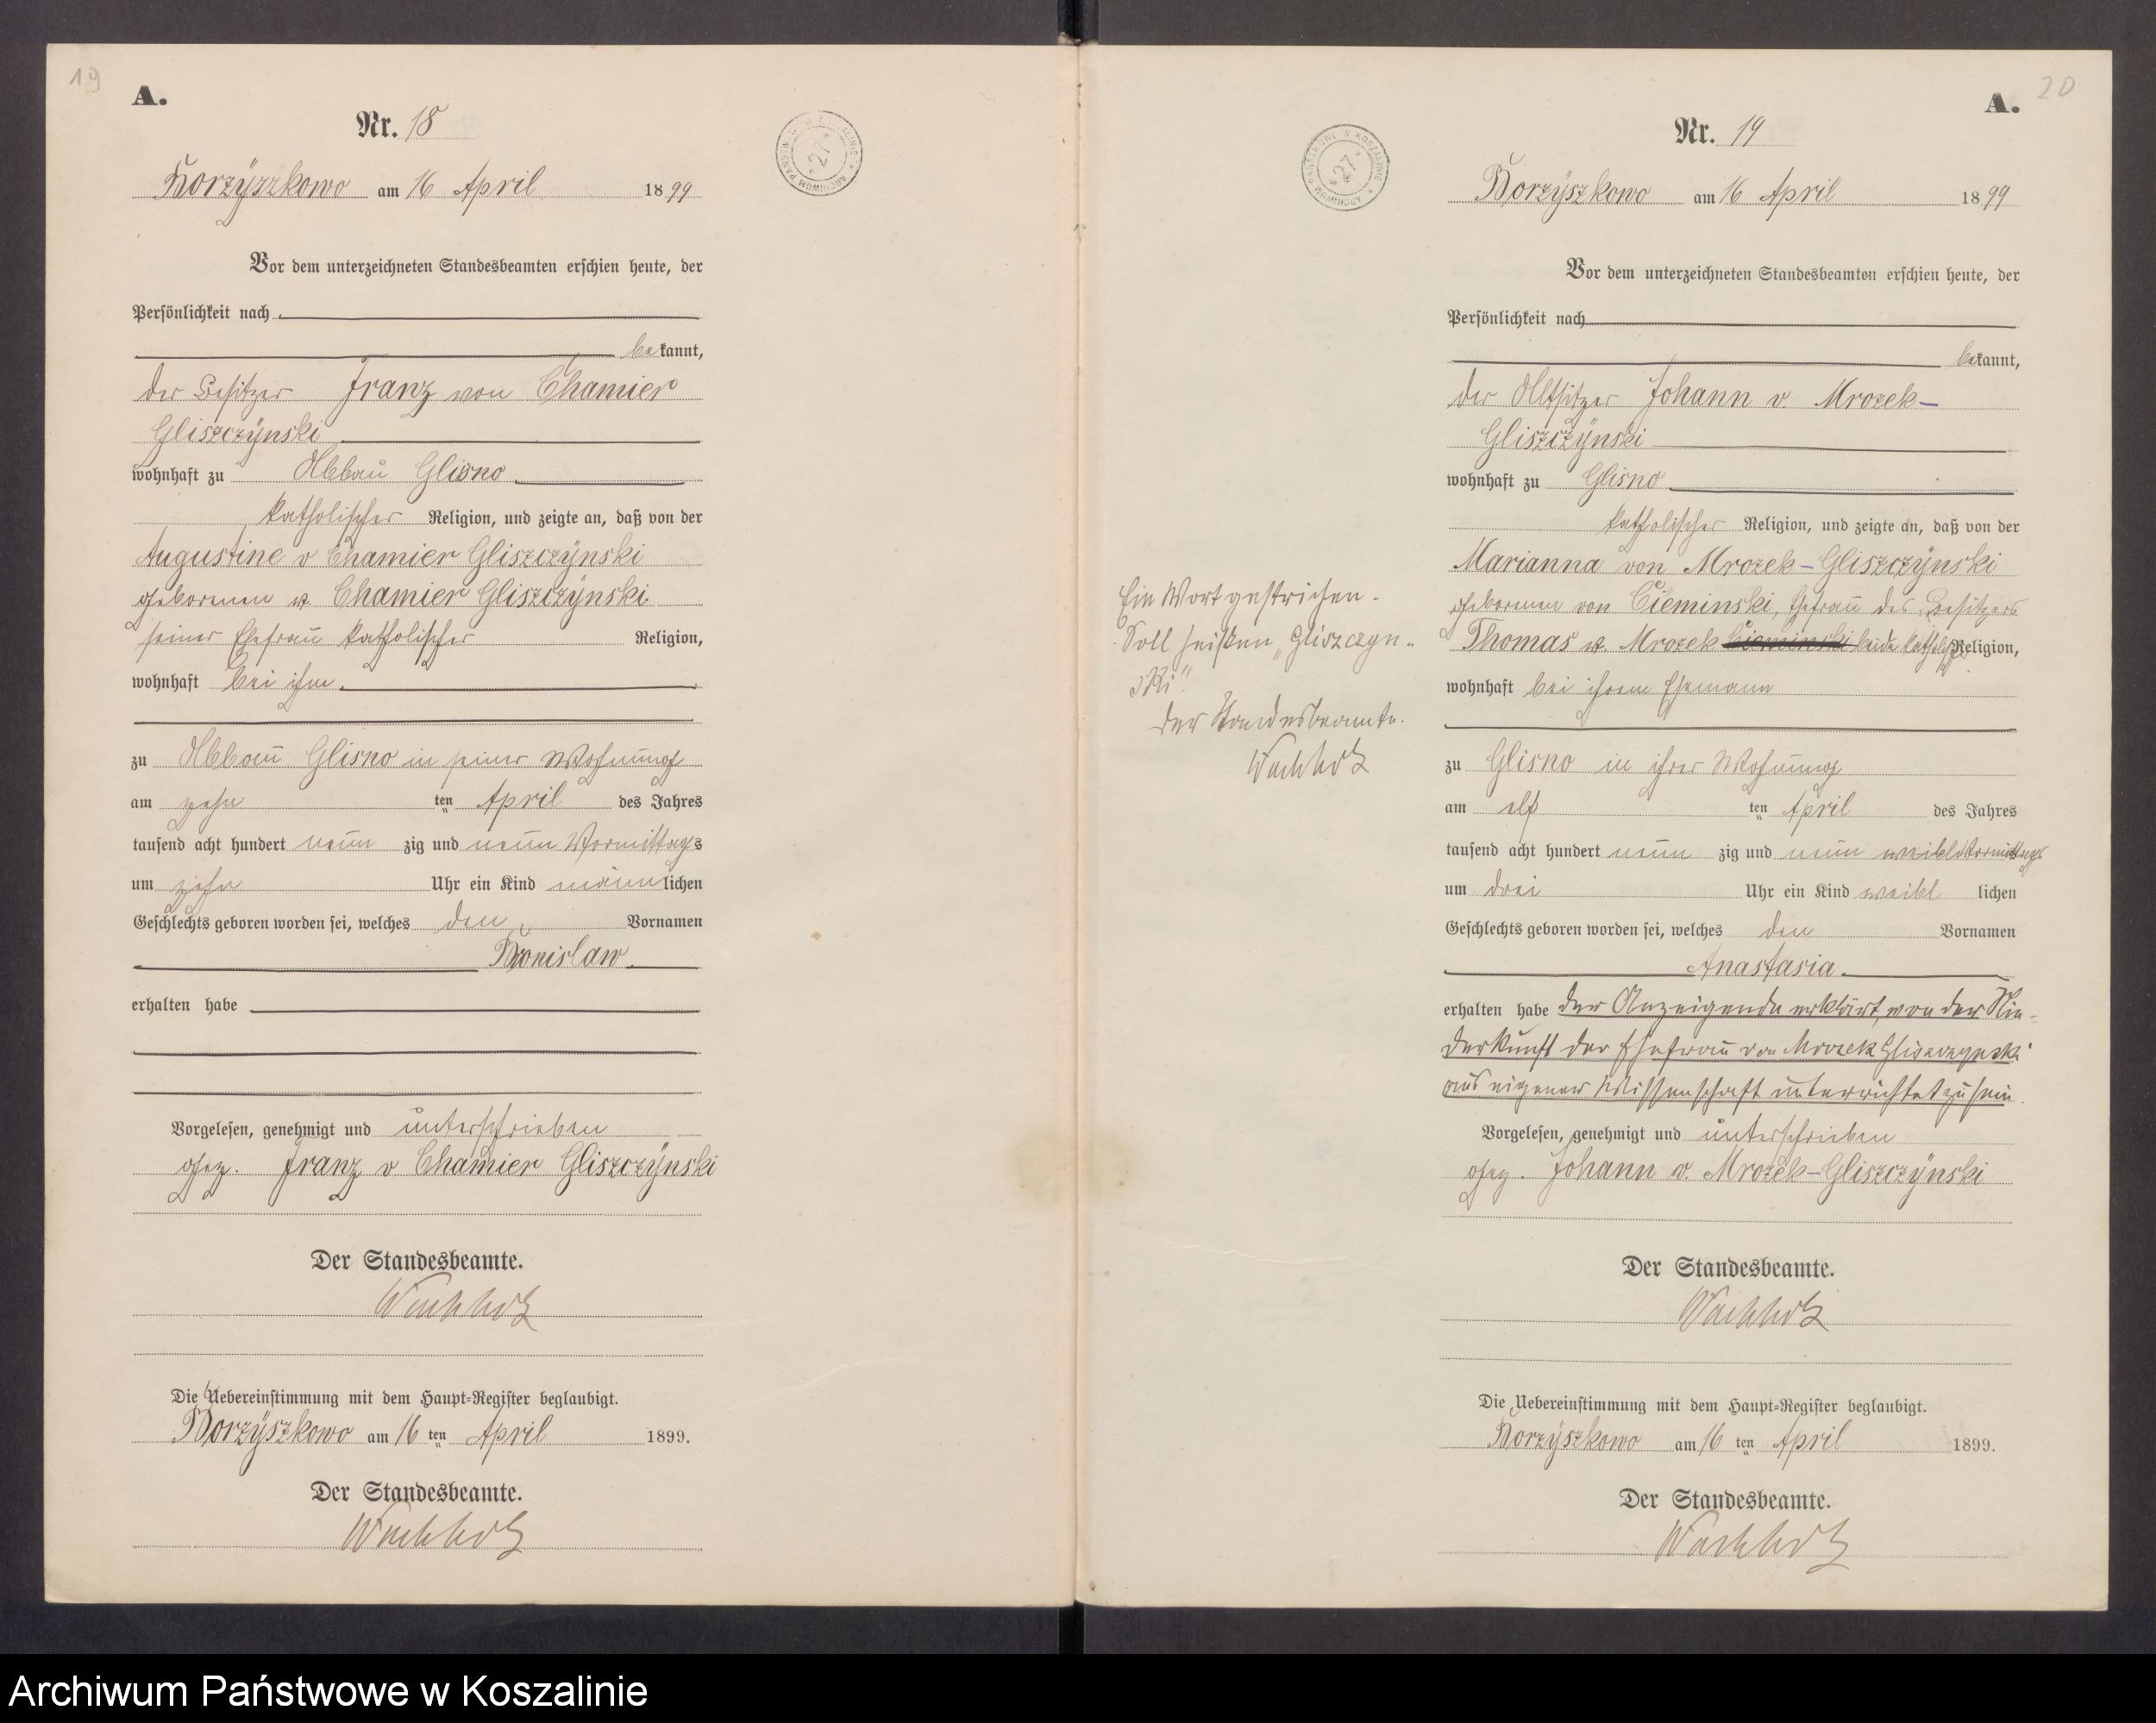 19
A.
Nr. 18
Borzÿszkowo am 16 April 1899
Vor dem unterzeichneten Standesbeamten erschien heute, der
Persönlichkeit nach
bekannt,
der Besitzer Franz von Chamier
Gliszczÿnski
wohnhaft zu Abbau Glisno
katholischer Religion, und zeigte an, daß von der
Augustine v Chamier Gliszczÿnski
geborenen v. Chamier Gliszczÿnski
seiner Ehefrau katholischer Religion,
wohnhaft bei ihm
zu Abbau Glisno in seiner Wohnung
am zehn ten April des Jahres
tausend acht hundert neun zig und neun Vormittags
um zehn Uhr ein Kind männlichen
Geschlechts geboren worden sei, welches den Vornamen
Bronislaw
erhalten habe
Vorgelesen, genehmigt und unterschrieben
gez. Franz v Chamier Gliszczÿnski
Der Standesbeamte.
Wachholz
Die Uebereinstimmung mit dem Haupt-Register beglaubigt.
Borzÿszkowo am 16 ten April 1899.
Der Standesbeamte.
Wachholz
ARCHIWUM PAŃSTWOWE W KOSZALINIE
27
20
A.
Nr. 19
Borzÿszkowo am 16 April 1899
Vor dem unterzeichneten Standesbeamten erschien heute, der
Persönlichkeit nach
bekannt,
der Altsitzer Johann v. Mrozek-
Gliszczÿnski
wohnhaft zu Glisno
katholischer Religion, und zeigte an, daß von der
Marianna von Mrozek-Gliszczÿnski
geborenen von Cieminski, Ehefrau des Besitzers
Thomas v. Mrozek Cieminski beide kathol. Religion,
wohnhaft bei ihrem Ehemann
zu Glisno in ihrer Wohnung
am elf ten April des Jahres
tausend acht hundert neun zig und neun weibl Vormittags
um drei Uhr ein Kind weibl lichen
Geschlechts geboren worden sei, welches den Vornamen
Anastasia
erhalten habe der Anzeigende erklärt, von der Nie-
derkunft der Ehefrau von Mrozek Gliszczynski
aus eigener Wissenschaft unterrichtet zu sein.
Vorgelesen, genehmigt und unterschrieben
gez. Johann v. Mrozek-Gliszczÿnski
Der Standesbeamte.
Wachholz
Die Uebereinstimmung mit dem Haupt-Register beglaubigt.
Borzÿszkowo am 16 ten April 1899.
Der Standesbeamte.
Wachholz
ARCHIWUM PAŃSTWOWE W KOSZALINIE
27
Ein Wort gestrichen.
Soll heißen „Gliszczyn-
ski".
Der Standesbeamte.
Wachholz
Archiwum Państwowe w Koszalinie